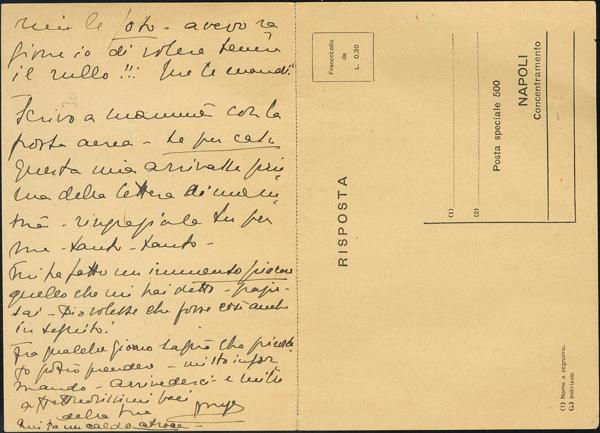 foto - avevo ra
gione io di volere
il rullo!!! me le mandi.
Scrivo a mammà con la
posta aerea - se per caso
questa mia arrivasse pri
ma della lettera di mam
mà - ringraziala tu per
me - tanto - tanto -
Mi ha fatto un immenso piacere
quello che mi hai detto -
sai - Dio volesse che fosse così anche
in seguito!
Fra qualche giorno saprò che
potrò prendere - mi sto infor
mando - arrivederci - e mille
affettuosissimi baci
dalla tua
qui fa un caldo atroce -
30
RISPOSTA
Francobollo
da
L. 0,30
(1)
(2)
Posta speciale 500
NAPOLI
Concentramento
(1) Nome e cognome.
(2) Indirizzo.